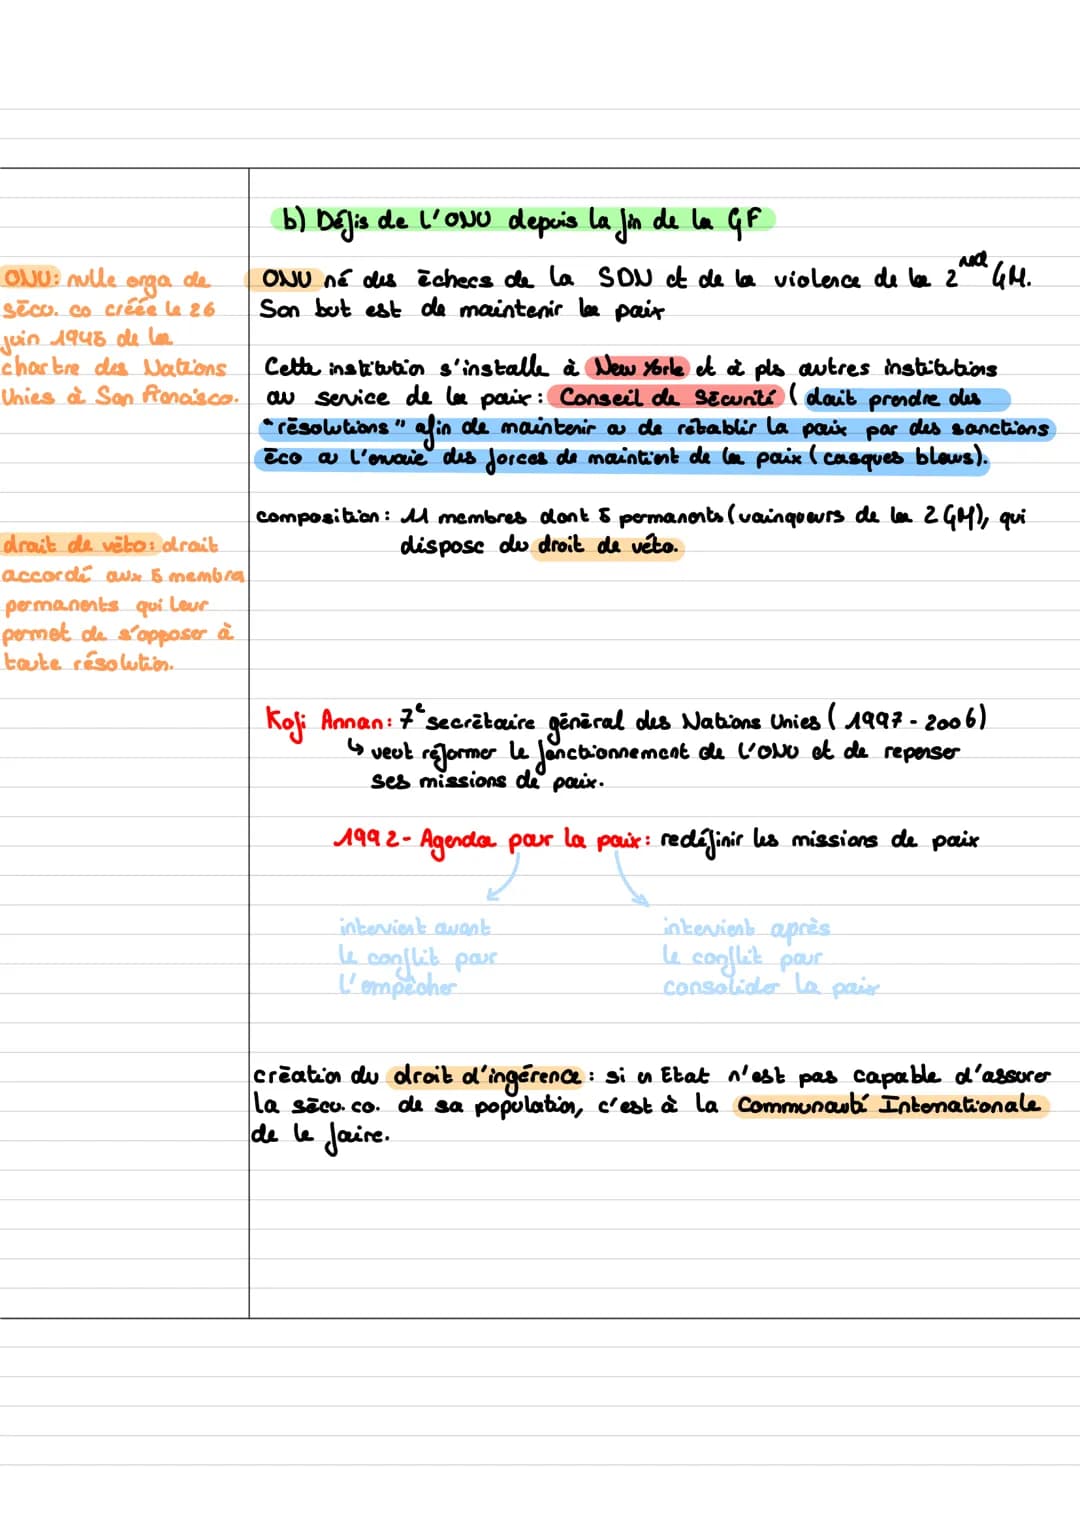 b) Défis de l'ONU depuis la fin de la GF
ONU: nvlle orga de
sécu. co créée le 26
juin 1945 de la
chartre des Nations
Unies à San Francisco.
ONU né des échecs de la SDN et de la violence de la 2nd GM.
Son but est de maintenir la paix
Cette institution s'installe à New York et à pls autres institutions
au service de la paix: Conseil de Sécurité ( doit prendre des
"résolutions" afin de maintenir ou de rétablir la paix par des sanctions
éco ou l'envoie des forces de maintient de la paix (casques bleus).
composition: 11 membres dont 5 permanents (vainqueurs de la 2 GM), qui
dispose du droit de véto.
droit de véto: droit
accordé aux 5 membra
permanents qui leur
permet de s'opposer à
toute résolution.
Kofi Annan: 7e secrétaire général des Nations Unies ( 1997 - 2006)
↳ veut réformer le fonctionnement de l'ONU et de repenser
ses missions de paix.
1992 - Agenda pour la paix: redéfinir les missions de paix
intervient avant
le conflit pour
l'empêcher
intervient après
le conflit pour
consolider la paix
création du droit d'ingérence: si un Etat n'est pas capable d'assurer
la sécu. co. de sa population, c'est à la Communauté Internationale
de le faire.